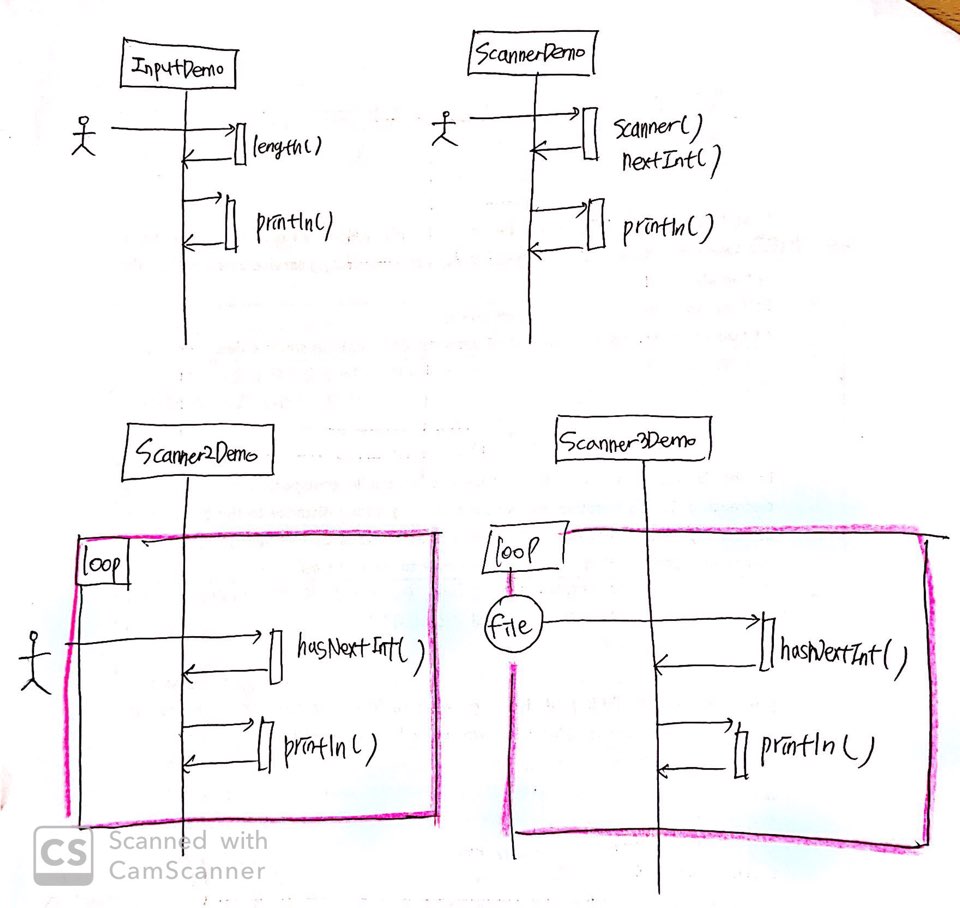 InputDemo
length()
println()
ScannerDemo
Scanner()
nextInt()
println()
Scanner2Demo
loop
hasNextInt()
println()
Scanner3Demo
loop
file
hasNextInt()
println()
CS Scanned with
CamScanner